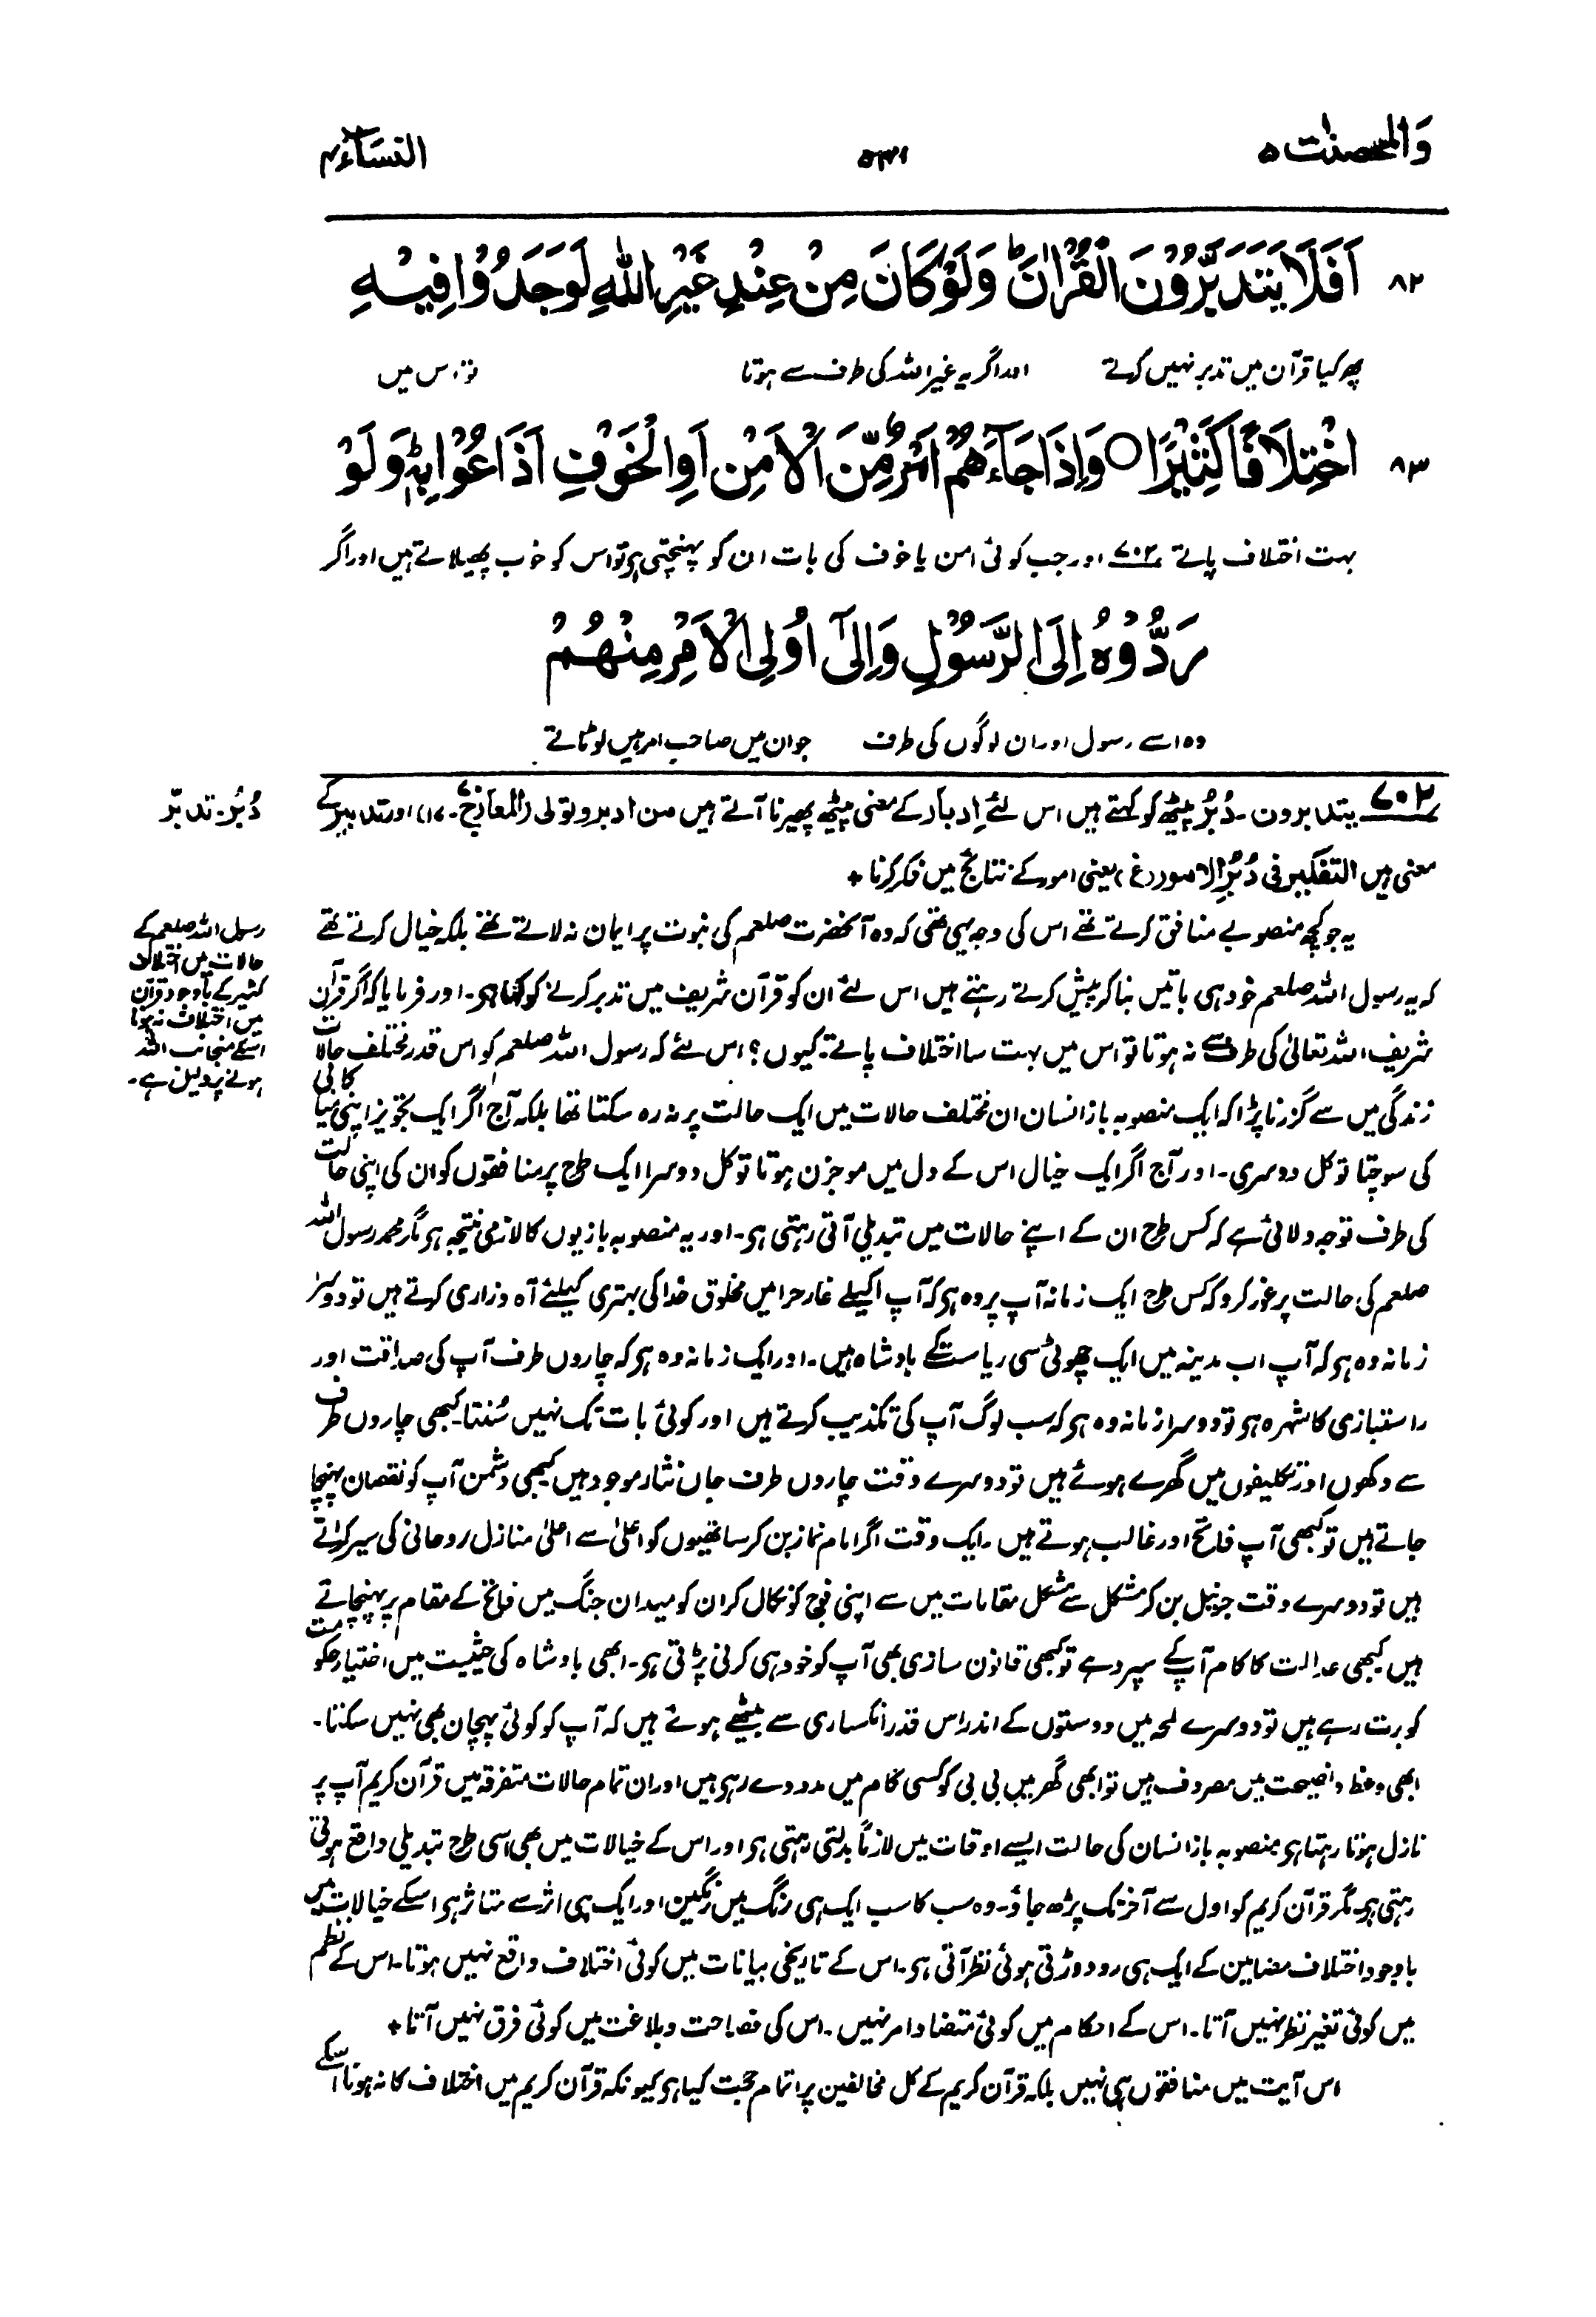 وَالمحصنٰت ۵
۵۳۱
النسَآء ۴
۸۲
اَفَلَا يَتَدَبَّرُوْنَ الْقُرْاٰنَ ؕ وَلَوْ كَانَ مِنْ عِنْدِ غَيْرِ اللّٰهِ لَوَجَدُوْا فِيْهِ
پھر کیا قرآن میں تدبر نہیں کرتے اور اگر یہ غیر اللہ کی طرف سے ہوتا تو اس میں
۸۳
اخْتِلَافًا كَثِيْرًا ○ وَاِذَا جَآءَهُمْ اَمْرٌ مِّنَ الْاَمْنِ اَوِ الْخَوْفِ اَذَاعُوْا بِهٖ ؕ وَلَوْ
بہت اختلاف پاتے ۷۰۲ اور جب کوئی امن یا خوف کی بات ان کو پہنچتی ہو تو اس کو خوب پھیلاتے ہیں اور اگر
رَدُّوْهُ اِلَى الرَّسُوْلِ وَاِلٰۤى اُولِى الْاَمْرِ مِنْهُمْ
وہ اسے رسول اور ان لوگوں کی طرف جو ان میں صاحب امر ہیں لوٹاتے
۷۰۲ یتدبرون ۔ دُبُر پیٹھ کو کہتے ہیں اس لئے اِدبار کے معنی پیٹھ پھیرنا آتے ہیں من ادبر وتولی (المعارج۔۱۷) اور تدبیر کے
معنی ہیں التفکیر فی دُبُرِ الامور (غ) یعنی امور کے نتائج میں فکر کرنا +
دُبُر۔ تدبّر
یہ جو کچھ منصوبے منافق کرتے تھے اس کی وجہ یہی تھی کہ وہ آنحضرت صلعم کی نبوت پر ایمان نہ لاتے تھے بلکہ خیال کرتے تھے
کہ یہ رسول اللہ صلعم خود ہی باتیں بنا کر پیش کرتے رہتے ہیں اس لئے ان کو قرآن شریف میں تدبر کرنے کو کہا ہو۔ اور فرمایا کہ اگر قرآن
شریف اللہ تعالیٰ کی طرف سے نہ ہوتا تو اس میں بہت سا اختلاف پاتے۔ کیوں؟ اس لئے کہ رسول اللہ صلعم کو اس قدر مختلف حالات
زندگی میں سے گزرنا پڑا کہ ایک منصوبہ باز انسان ان مختلف حالات میں ایک حالت پر نہ رہ سکتا تھا بلکہ آج اگر ایک تجویز اپنی کامیابی
کی سوچتا تو کل دوسری۔ اور آج اگر ایک خیال اس کے دل میں موجزن ہوتا تو کل دوسرا ایک طرح پر منافقوں کو ان کی اپنی حالت
کی طرف توجہ دلائی ہے کہ کس طرح ان کے اپنے حالات میں تبدیلی آتی رہتی ہو۔ اور یہ منصوبہ بازیوں کا لازمی نتیجہ ہو مگر محمد رسول اللہ
صلعم کی حالت پر غور کرو کہ کس طرح ایک زمانہ آپ پر وہ ہو کہ آپ اکیلے غار حرا میں مخلوق خدا کی بہتری کیلئے آہ وزاری کرتے ہیں تو دوسرا
زمانہ وہ ہو کہ آپ اب مدینہ میں ایک چھوٹی سی ریاست کے بادشاہ ہیں۔ اور ایک زمانہ وہ ہو کہ چاروں طرف آپ کی صداقت اور
راستبازی کا شہرہ ہو تو دوسرا زمانہ وہ ہو کہ سب لوگ آپ کی تکذیب کرتے ہیں اور کوئی بات تک نہیں سُنتا۔ کبھی چاروں طرف
سے دکھوں اور تکلیفوں میں گھرے ہوئے ہیں تو دوسرے وقت چاروں طرف جاں نثار موجود ہیں کبھی دشمن آپ کو نقصان پہنچا
جاتے ہیں تو کبھی آپ فاتح اور غالب ہوتے ہیں ۔ ایک وقت اگر امام نماز بن کر ساتھیوں کو اعلیٰ سے اعلیٰ منازل روحانی کی سیر کراتے
ہیں تو دوسرے وقت جرنیل بن کر مشکل سے مشکل مقامات میں سے اپنی فوج کو نکال کر ان کو میدان جنگ میں فاتح کے مقام پر پہنچاتے
ہیں کبھی عدالت کا کام آپ کے سپرد ہے تو کبھی قانون سازی بھی آپ کو خود ہی کرنی پڑتی ہو۔ ابھی بادشاہ کی حیثیت میں اختیار حکومت
کو برت رہے ہیں تو دوسرے لمحہ میں دوستوں کے اندر اس قدر انکساری سے بیٹھے ہوئے ہیں کہ آپ کو کوئی پہچان بھی نہیں سکتا۔
ابھی وعظ و نصیحت میں مصروف ہیں تو ابھی گھر میں بی بی کو کسی کام میں مدد دے رہے ہیں اور ان تمام حالات متفرقہ میں قرآن کریم آپ پر
نازل ہوتا رہتا ہو منصوبہ باز انسان کی حالت ایسے اوقات میں لازماً بدلتی رہتی ہو اور اس کے خیالات میں بھی اسی طرح تبدیلی واقع ہوتی
رہتی ہو۔ مگر قرآن کریم کو اول سے آخر تک پڑھ جاؤ۔ وہ سب کا سب ایک ہی رنگ میں رنگین اور ایک ہی اثر سے متاثر ہو اسکے خیالات میں
باوجود اختلاف مضامین کے ایک ہی رو دوڑتی ہوئی نظر آتی ہو۔ اس کے تاریخی بیانات میں کوئی اختلاف واقع نہیں ہوتا۔ اس کے نظم
میں کوئی تغیر نظر نہیں آتا۔ اس کے احکام میں کوئی متضاد امر نہیں ۔ اس کی فصاحت و بلاغت میں کوئی فرق نہیں آتا +
اس آیت میں منافقوں ہی نہیں بلکہ قرآن کریم کے کل مخالفین پر اتمام حجت کیا ہو کیونکہ قرآن کریم میں اختلاف کا نہ ہونا اسکے
رسول اللہ صلعم کے
حالات میں اختلاف
کثیر کے باوجود قرآن
میں اختلاف نہ ہونا
اسکے منجانب اللہ
ہونے پر دلیل ہے۔